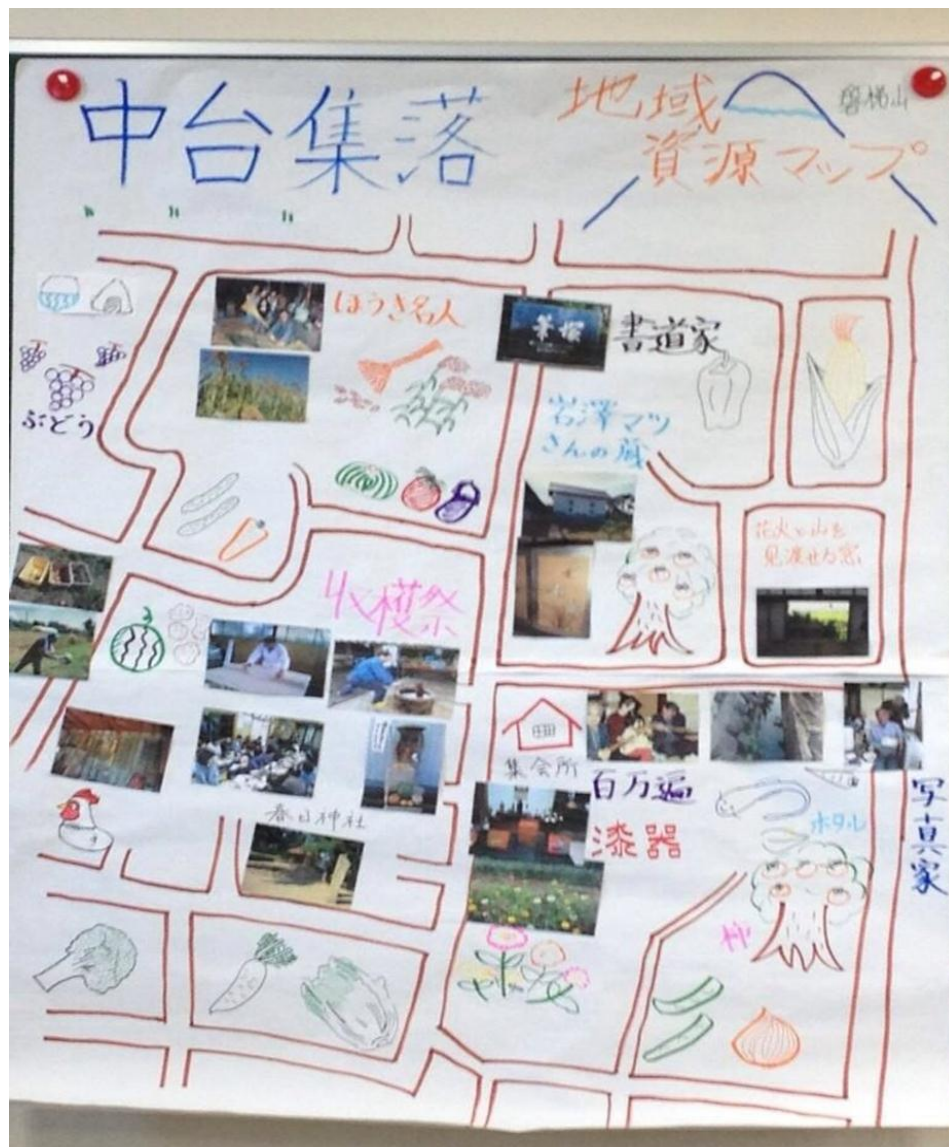 中台集落
地域
資源マップ
磐梯山
ほうき名人
書道家
ぶどう
岩澤マツ
さんの蔵
花火と山を
見渡せる窓
収穫祭
集会所
百万遍
漆器
ホタル
写真家
春日神社
柿